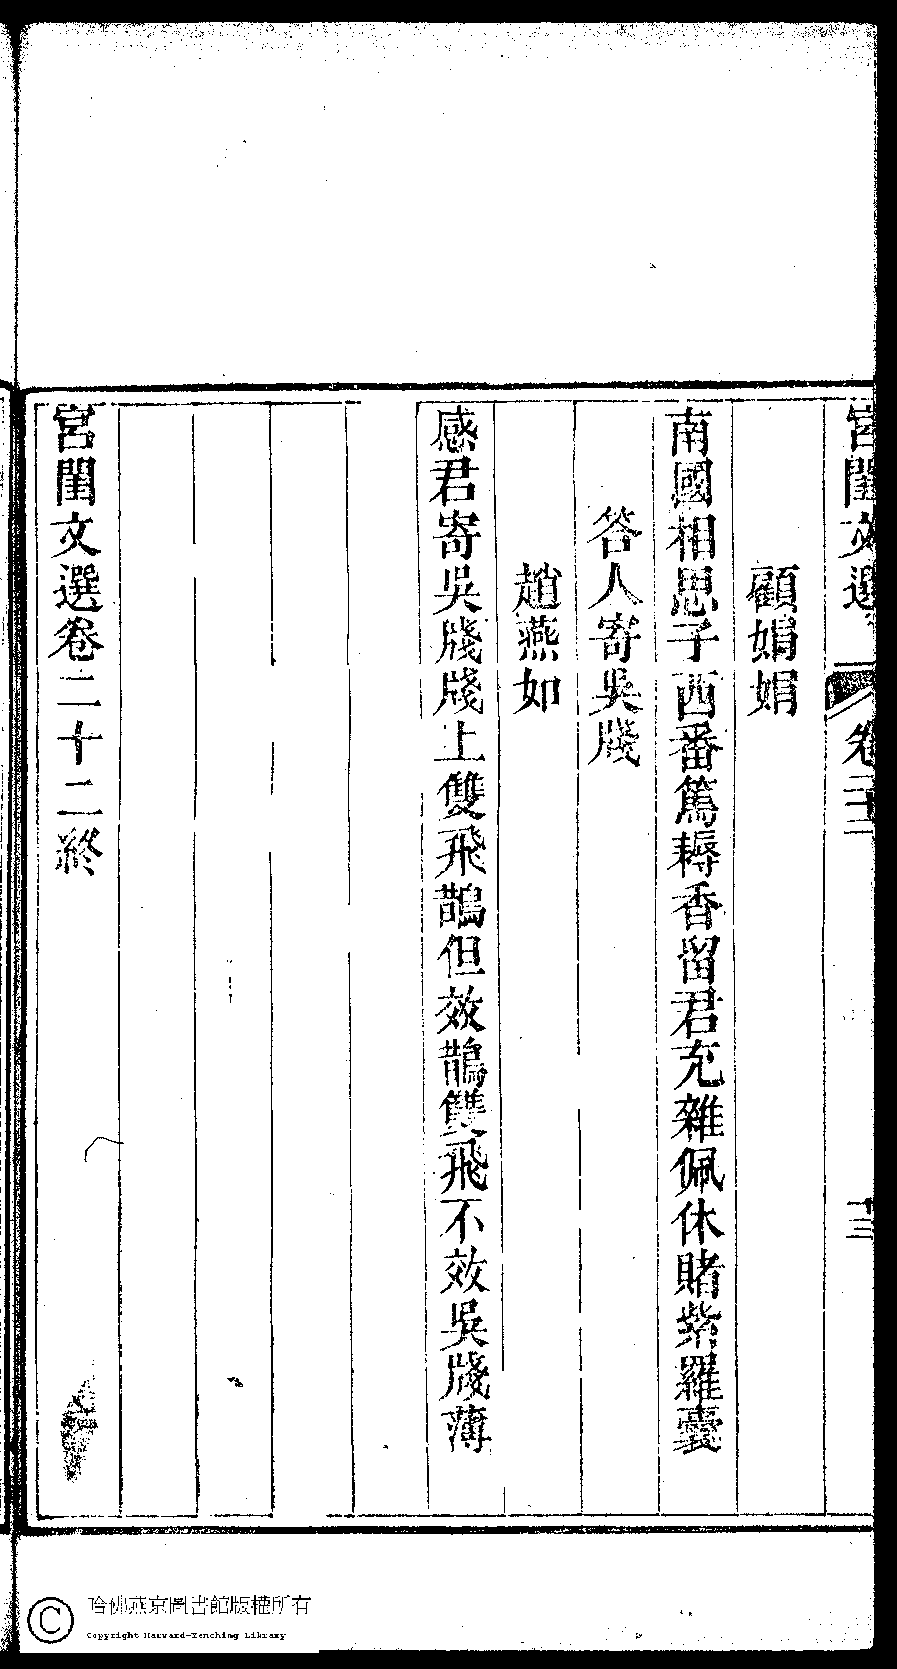 宮閨文選 卷二十二 十三
顧娟娟
南國相思子西番篤耨香留君充雜佩休賭紫羅囊
答人寄吳牋
趙燕如
感君寄吳牋牋上雙飛鵲但效鵲雙飛不效吳牋薄
宮閨文選卷二十二終
哈佛燕京圖書館版權所有
Copyright Harvard-Yenching Library